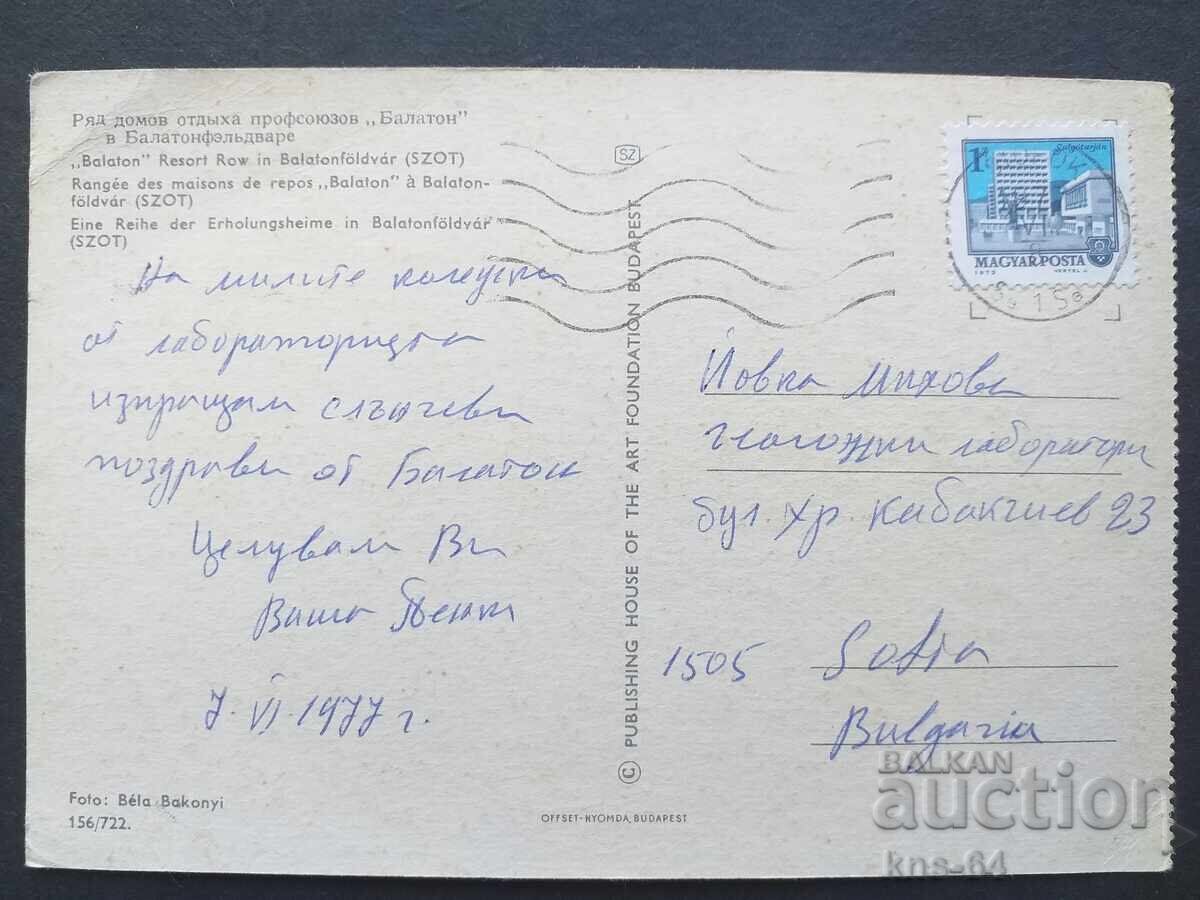 Ряд домов отдыха профсоюзов „Балатон"
в Балатонфэльдваре
„Balaton" Resort Row in Balatonföldvár (SZOT)
Rangée des maisons de repos „Balaton" à Balaton-
földvár (SZOT)
Eine Reihe der Erholungsheime in Balatonföldvár
(SZOT)
На милите колежки
от лабораторията
изпращам слънчеви
поздрави от Балатон
Целувам Ви
Ваша Пенка
7.VI.1977 г.
Foto: Béla Bakonyi
156/722.
SZ
© PUBLISHING HOUSE OF THE ART FOUNDATION BUDAPEST
OFFSET-NYOMDA, BUDAPEST
1Ft
Salgótarján
MAGYAR POSTA
1973 VERTEL J.
Йовка Михова
лаборатори
бул. Хр. Кабакчиев 23
1505 Sofia
Bulgaria
BALKAN
auction
kns-64